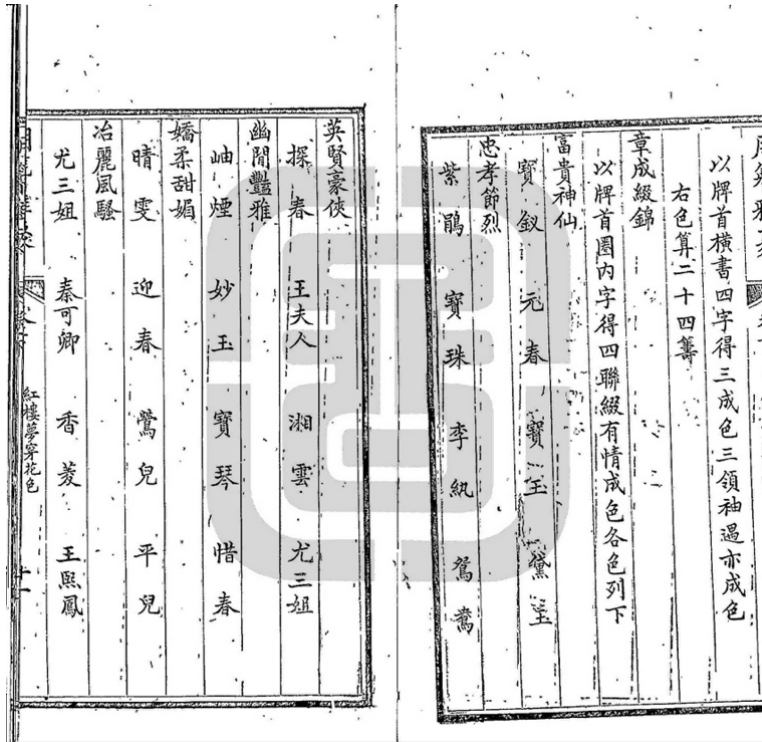 以牌首橫書四字得三成色三領袖過亦成色
右色算二十四籌
章成綴錦
以牌首圈內字得四聯綴有情成色各色列下
富貴神仙
寶釵 元春 寶玉 黛玉
忠孝節烈
紫鵑 寶珠 李紈 鴛鴦
英賢豪俠
探春 王夫人 湘雲 尤三姐
幽閒豔雅
岫煙 妙玉 寶琴 惜春
嬌柔甜媚
晴雯 迎春 鶯兒 平兒
冶麗風騷
尤三姐 秦可卿 香菱 王熙鳳
紅樓夢穿花色